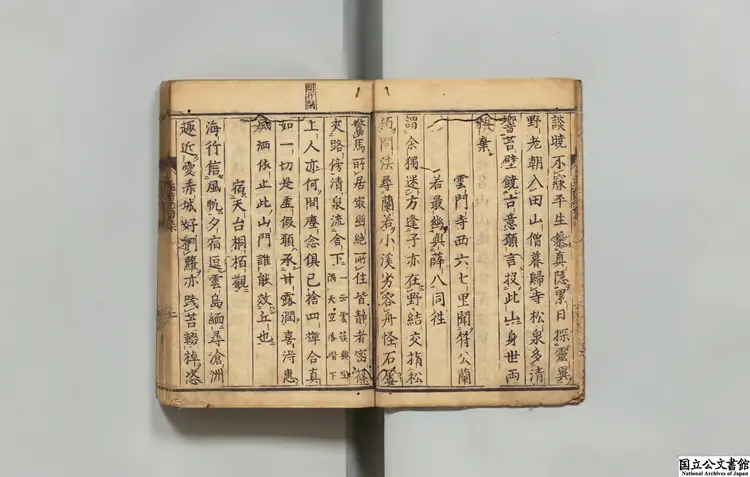 談曉不寐平生慕真隱累日探靈異
野老朝入田山僧暮歸寺松泉多清
響苔壁鏡古意願言投此山身世兩
棄
雲門寺西六七里聞符公蘭
若最幽與薛八同徃
謂余獨迷方逢子亦在野結交指松
栢問法尋蘭若小溪劣容舟怪石屢
驚馬所居㝡幽絶所住皆靜者密篠
夾路傍清泉流舍下一云雲簇興座
隅天空落階下
上人亦何問塵念俱已捨四禪合真
如一切是虛假願承甘露潤喜得惠
風洒依止此山門誰能效丘也
宿天台桐栢觀
海行信風帆夕宿逗雲島緬尋滄洲
趣近愛赤城好捫蘿亦踐苔輟棹恣
国立公文書館
National Archives of Japan